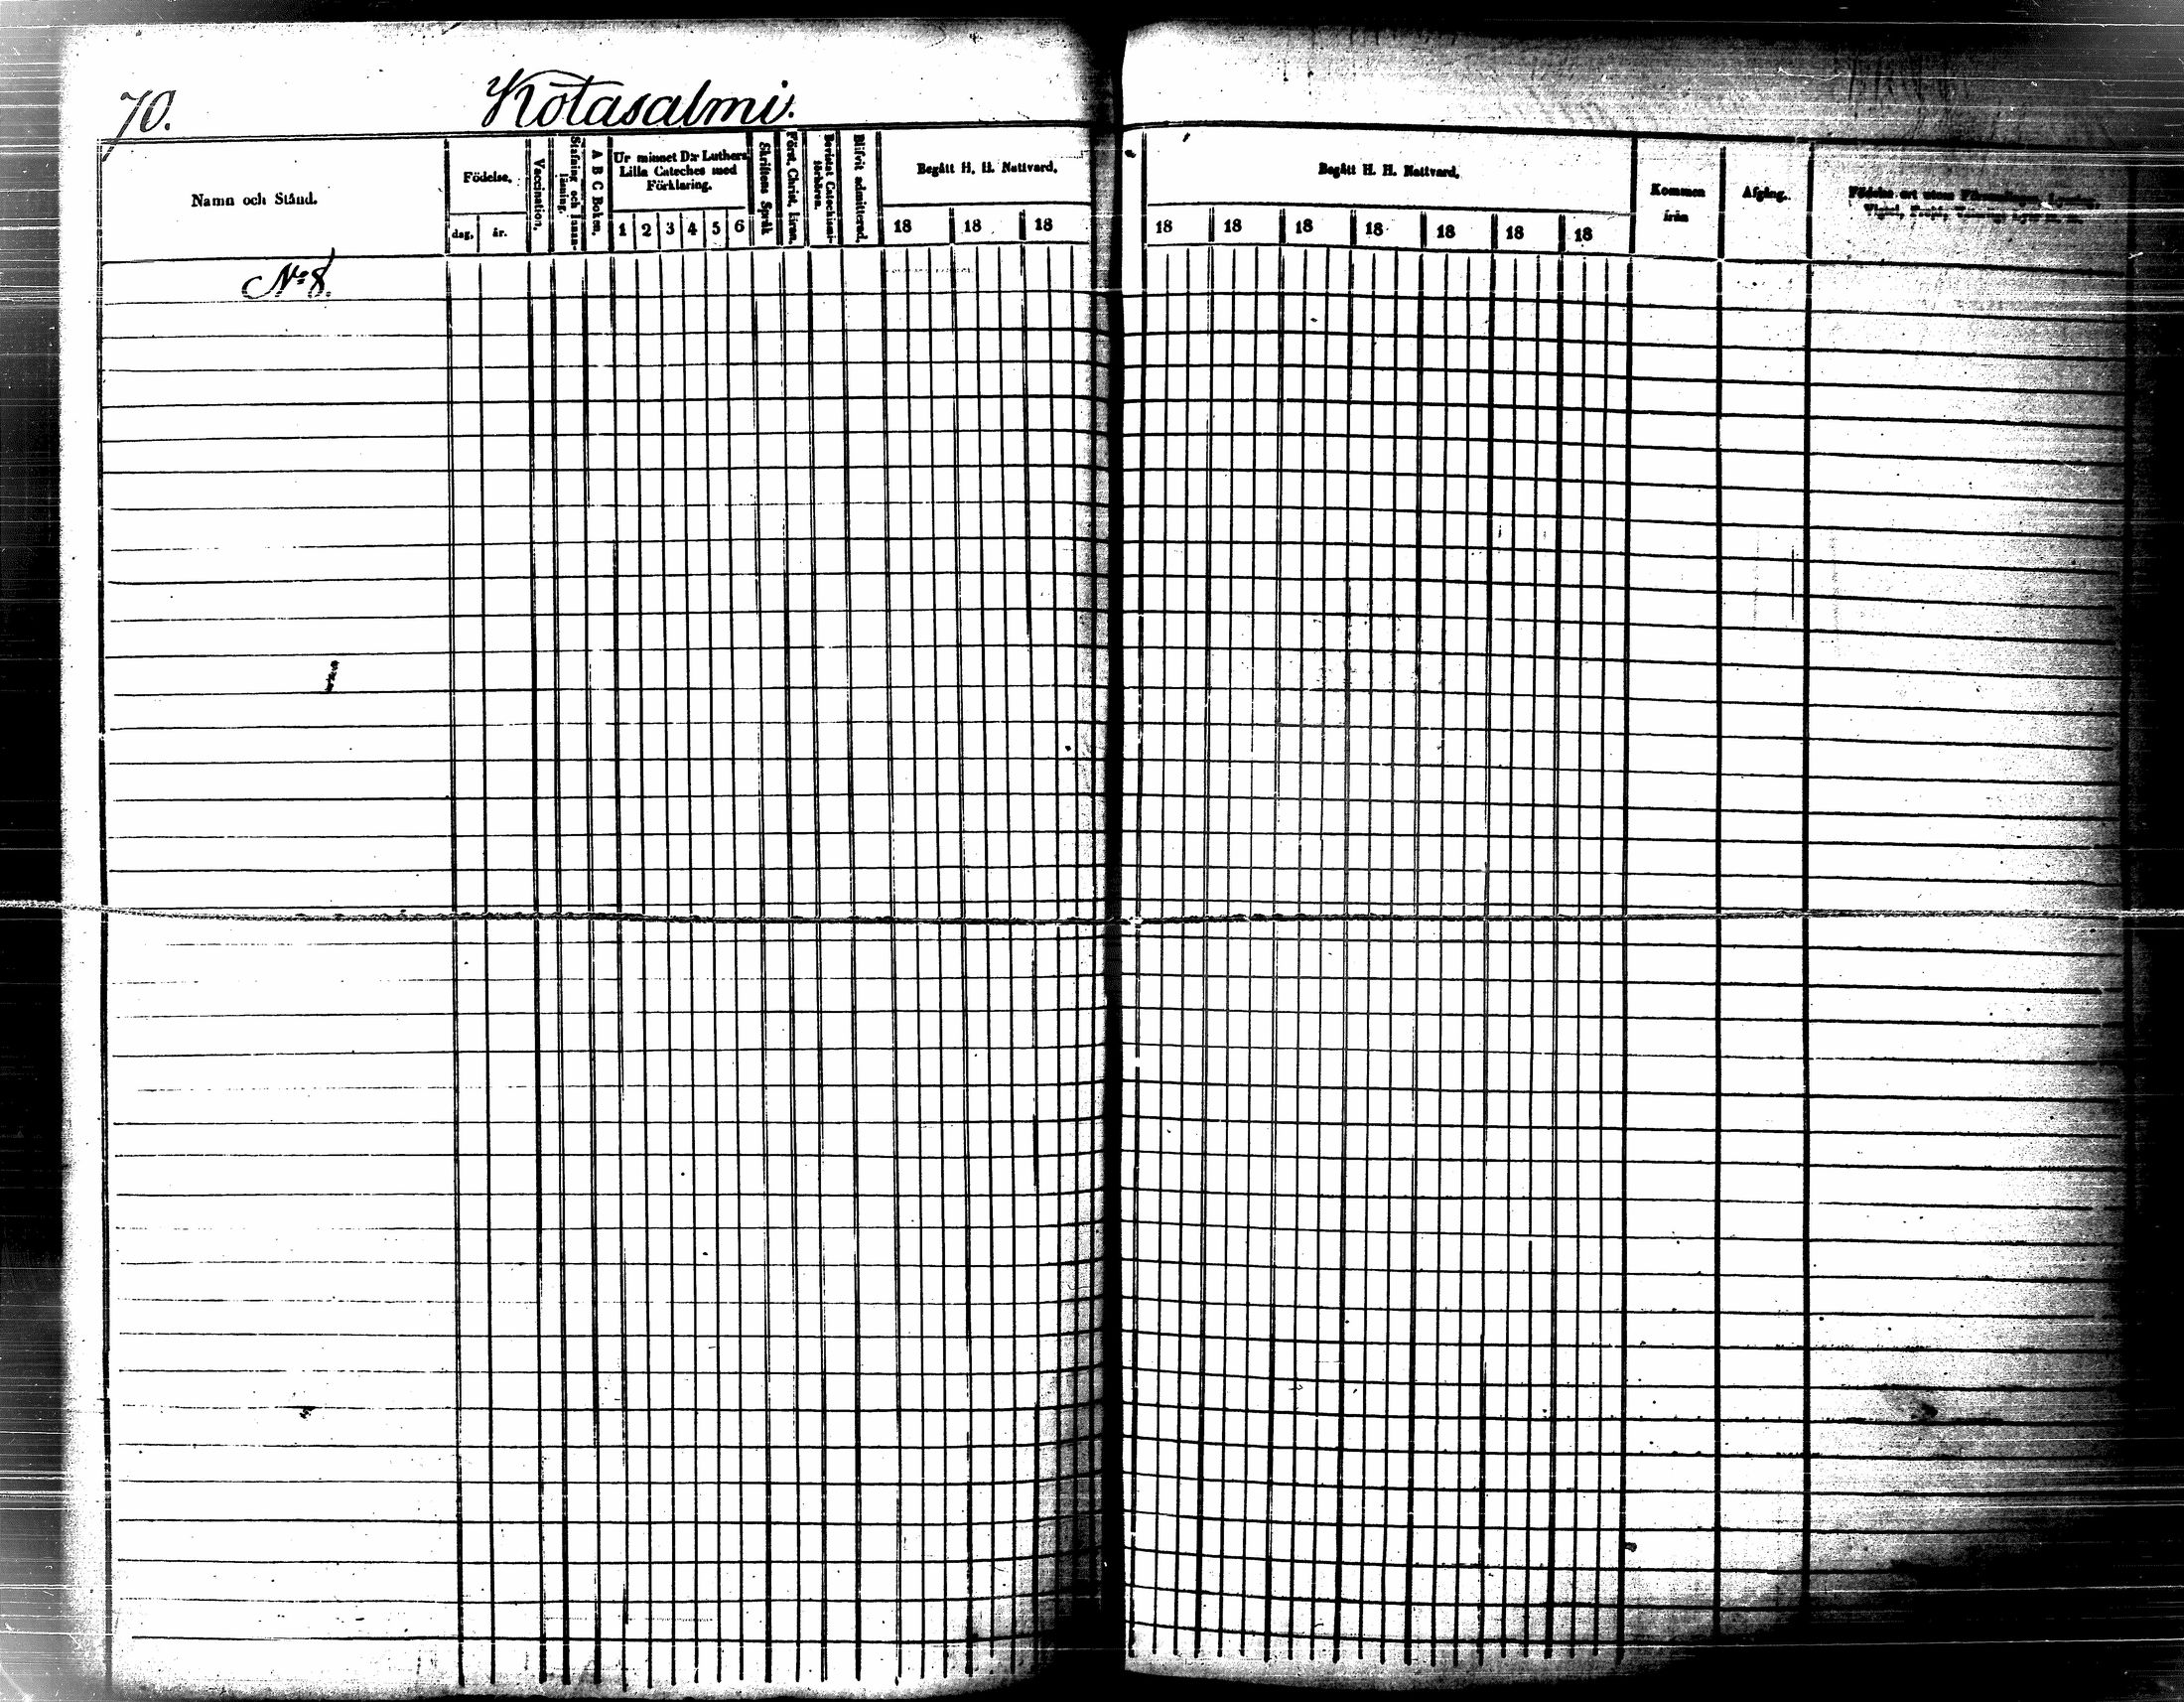 70.
Kotasalmi.
Namn och Stånd.
Födelse.
dag,
år.
Vaccination.
Stafning och Innan-
läsning.
A B C Boken.
Ur minnet D:r Luthers
Lilla Cateches med
Förklaring.
1 2 3 4 5 6
Skriftens Språk
Först. Christ. läran.
Bevistat Catechismi-
förhören.
Blifvit admitterad.
Begått H. H. Nattvard.
18 18 18
Begått H. H. Nattvard.
18 18 18 18 18 18 18
Kommen
ifrån
Afgång.
No 8.